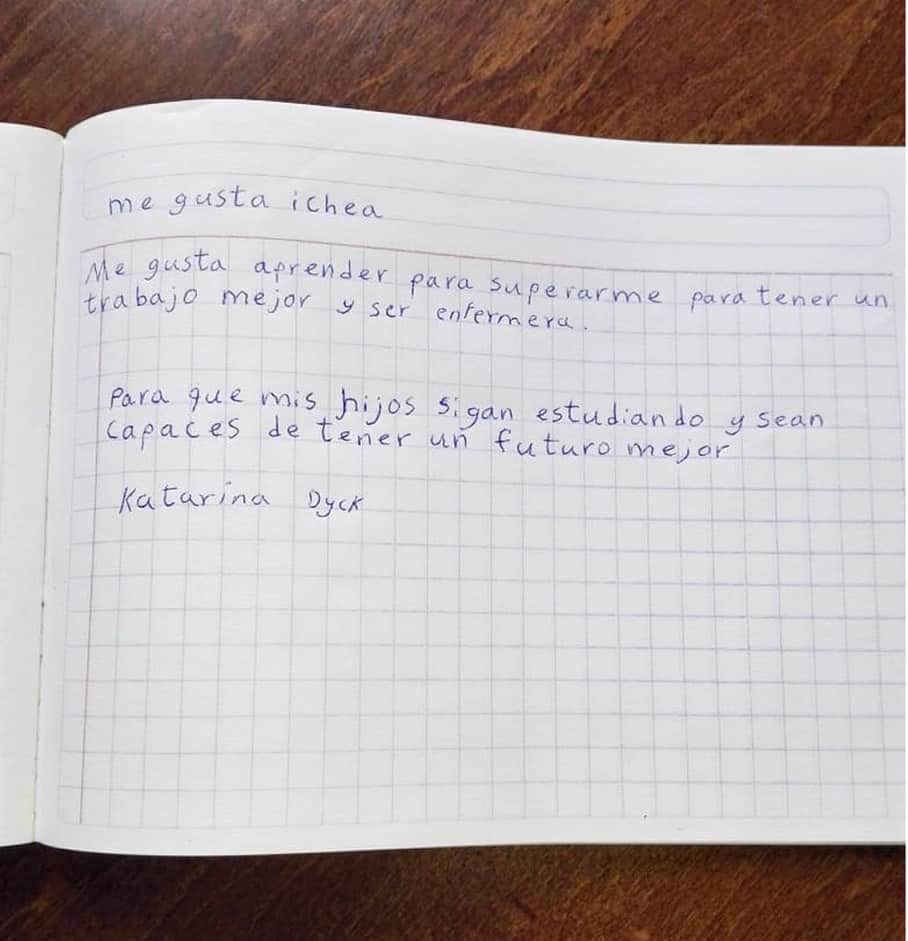 me gusta ichea
Me gusta aprender para superarme para tener un
trabajo mejor y ser enfermera.
Para que mis hijos sigan estudiando y sean
capaces de tener un futuro mejor
Katarina Dyck